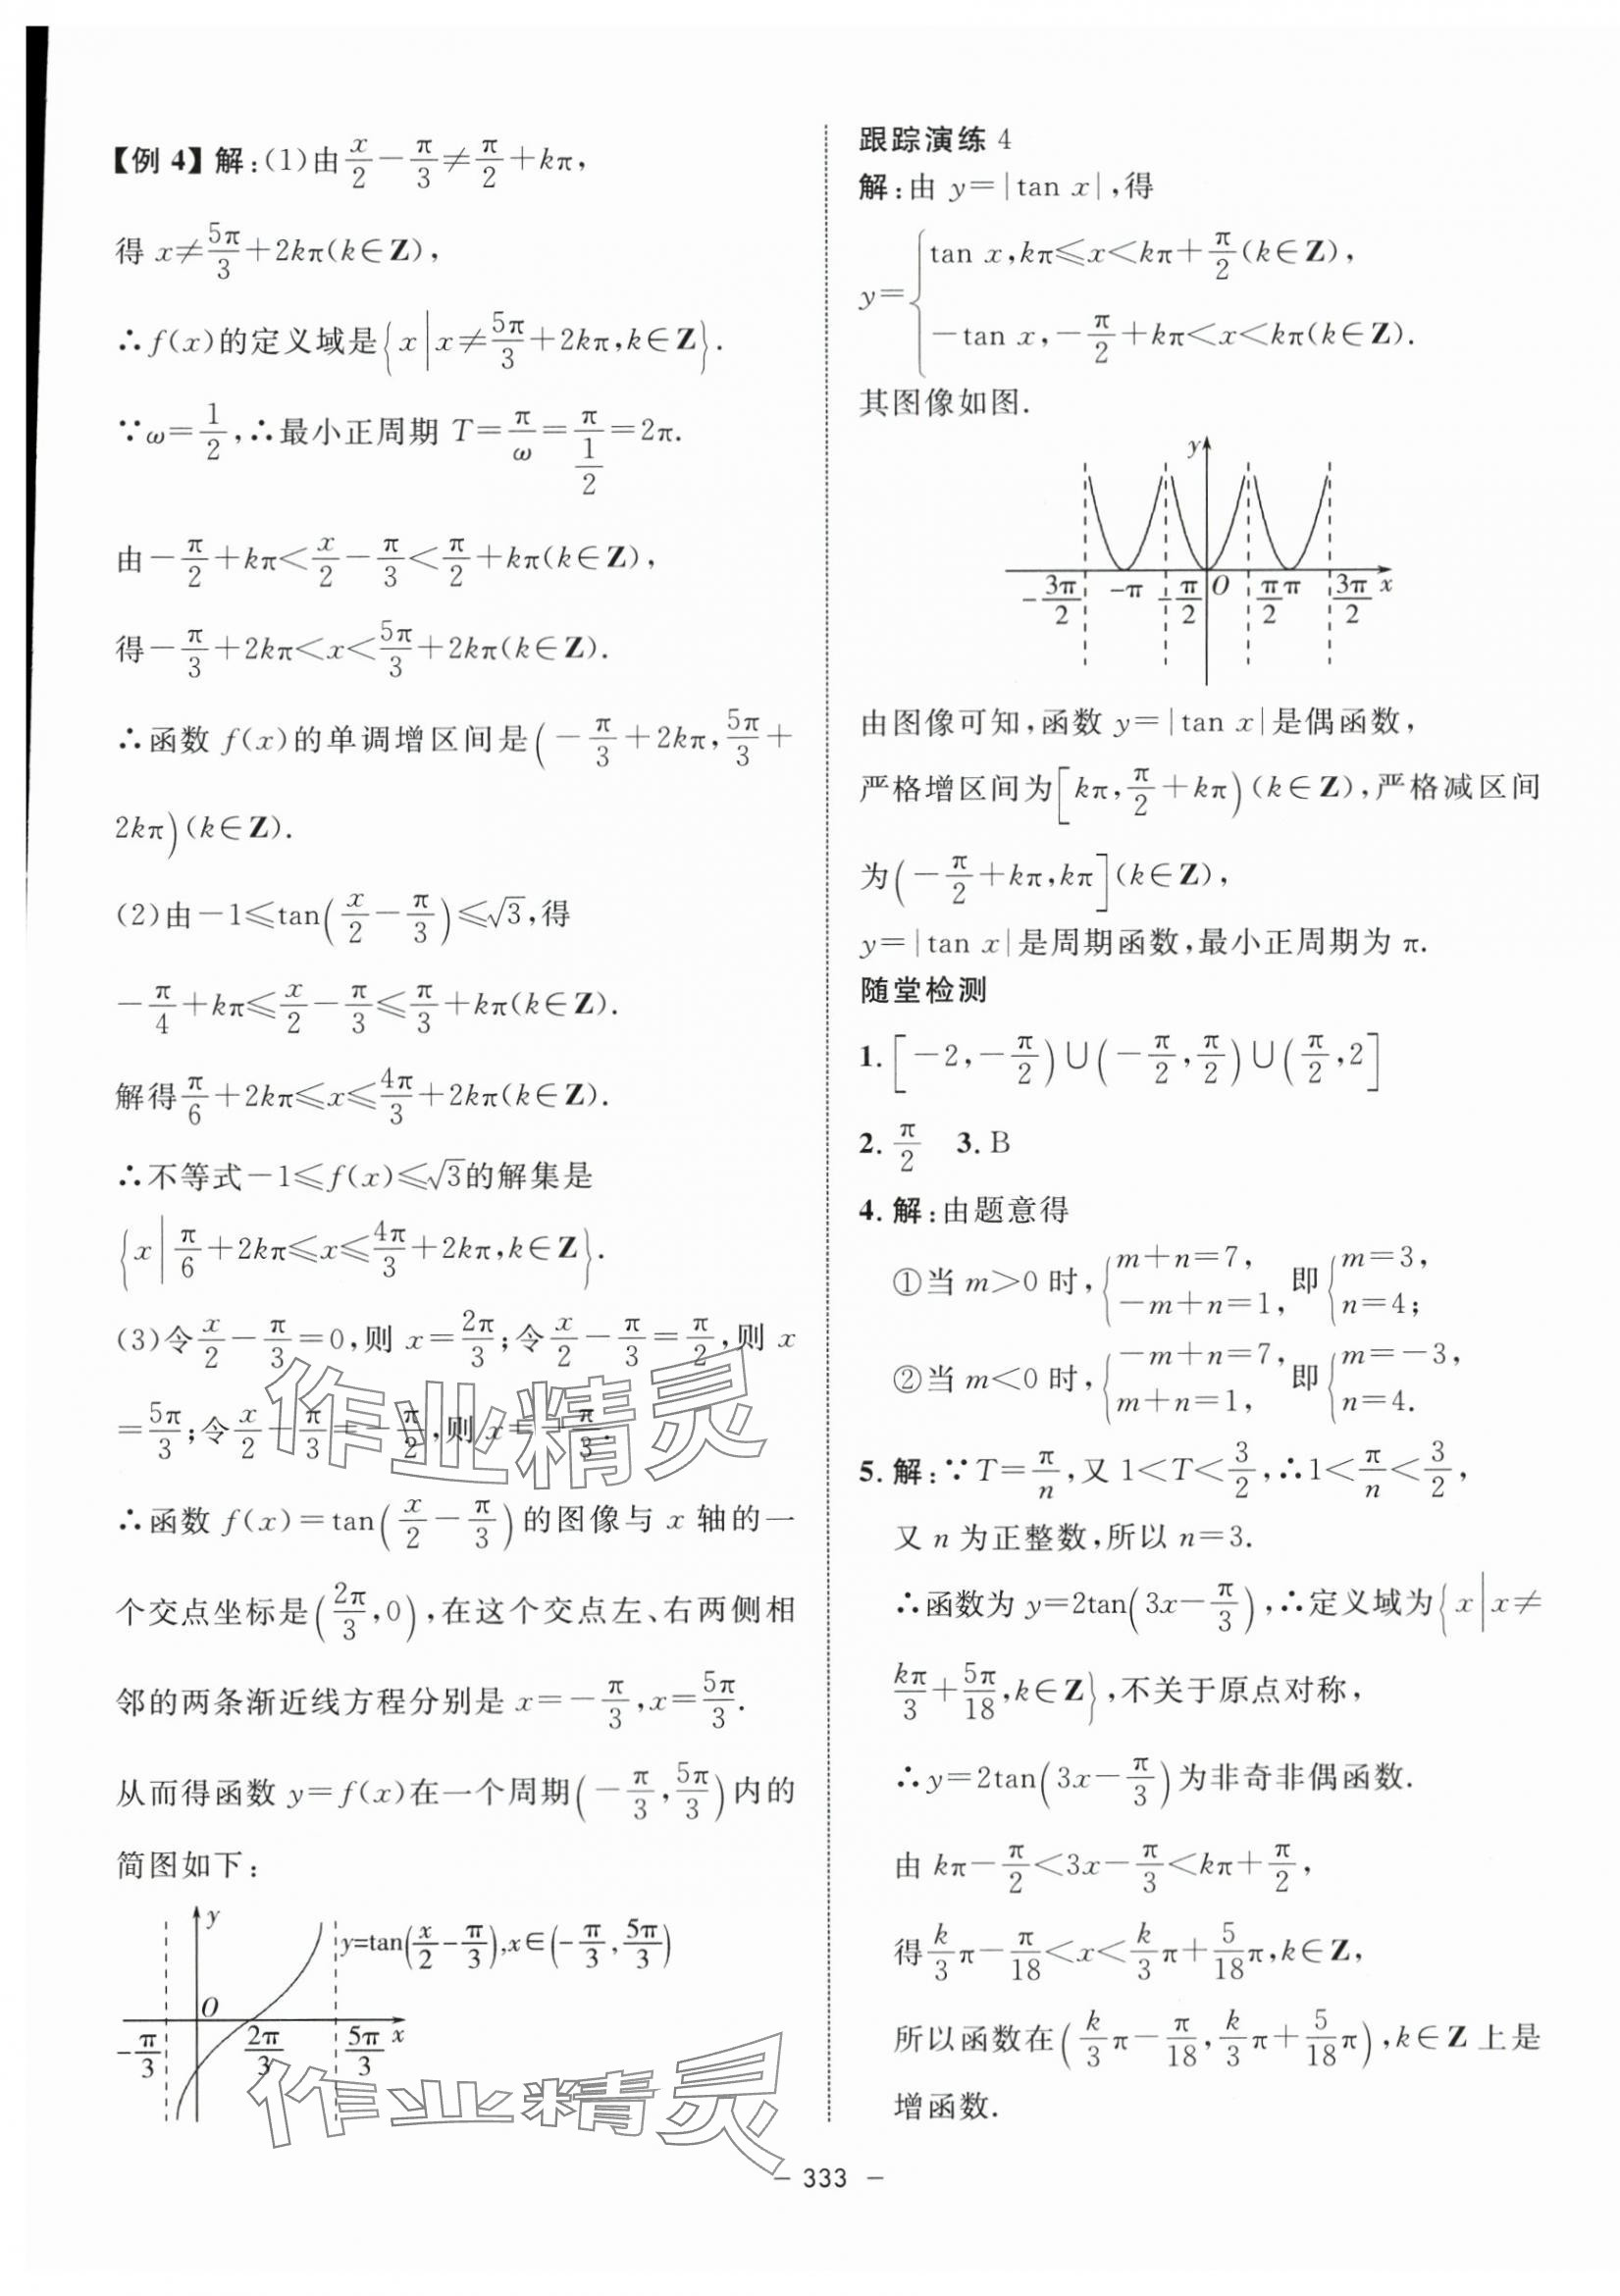 【例 4】解:(1)由x/2-π/3≠π/2+kπ,
得 x≠5π/3+2kπ(k∈Z),
∴f(x)的定义域是{x|x≠5π/3+2kπ,k∈Z}.
∵ω=1/2,∴最小正周期 T=π/ω=π/(1/2)=2π.
由-π/2+kπ<x/2-π/3<π/2+kπ(k∈Z),
得-π/3+2kπ<x<5π/3+2kπ(k∈Z).
∴函数 f(x)的单调增区间是(-π/3+2kπ,5π/3+
2kπ)(k∈Z).
(2)由-1≤tan(x/2-π/3)≤√3,得
-π/4+kπ≤x/2-π/3≤π/3+kπ(k∈Z).
解得π/6+2kπ≤x≤4π/3+2kπ(k∈Z).
∴不等式-1≤f(x)≤√3的解集是
{x|π/6+2kπ≤x≤4π/3+2kπ,k∈Z}.
(3)令x/2-π/3=0,则 x=2π/3;令x/2-π/3=π/2,则 x
=5π/3;令x/2-π/3=-π/2,则 x=-π/3.
∴函数 f(x)=tan(x/2-π/3)的图像与 x 轴的一
个交点坐标是(2π/3,0),在这个交点左、右两侧相
邻的两条渐近线方程分别是 x=-π/3,x=5π/3.
从而得函数 y=f(x)在一个周期(-π/3,5π/3)内的
简图如下:
y
y=tan(x/2-π/3),x∈(-π/3,5π/3)
O
-π/3 2π/3 5π/3 x
跟踪演练 4
解:由 y=|tan x|,得
y={tan x,kπ≤x<kπ+π/2(k∈Z),
-tan x,-π/2+kπ<x<kπ(k∈Z).
其图像如图.
y
-3π/2 -π -π/2 O π/2 π 3π/2 x
由图像可知,函数 y=|tan x|是偶函数,
严格增区间为[kπ,π/2+kπ)(k∈Z),严格减区间
为(-π/2+kπ,kπ](k∈Z),
y=|tan x|是周期函数,最小正周期为 π.
随堂检测
1. [-2,-π/2)∪(-π/2,π/2)∪(π/2,2]
2. π/2 3. B
4. 解:由题意得
①当 m>0 时,{m+n=7, -m+n=1, 即{m=3, n=4;
②当 m<0 时,{-m+n=7, m+n=1, 即{m=-3, n=4.
5. 解:∵T=π/n,又 1<T<3/2,∴1<π/n<3/2,
又 n 为正整数,所以 n=3.
∴函数为 y=2tan(3x-π/3),∴定义域为{x|x≠
kπ/3+5π/18,k∈Z},不关于原点对称,
∴y=2tan(3x-π/3)为非奇非偶函数.
由 kπ-π/2<3x-π/3<kπ+π/2,
得k/3π-π/18<x<k/3π+5/18π,k∈Z,
所以函数在(k/3π-π/18,k/3π+5/18π),k∈Z 上是
增函数.
作业精灵
作业精灵
- 333 -